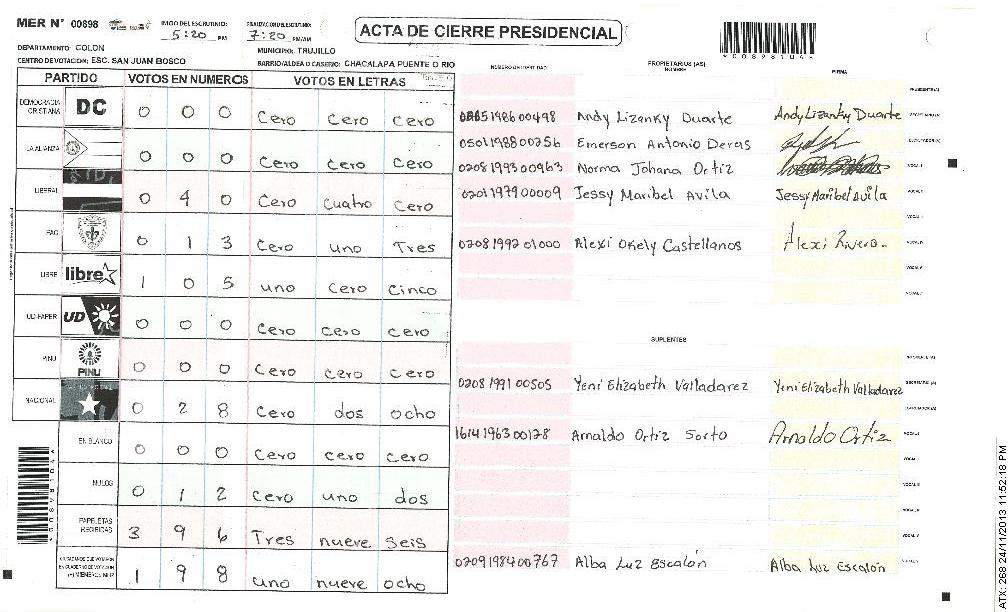 MER N° 00898
INICIO DEL ESCRUTINIO: 5:20 PM
FINALIZACION DEL ESCRUTINIO: 7:20 PM/AM
ACTA DE CIERRE PRESIDENCIAL
*008981DA*
DEPARTAMENTO: COLON
MUNICIPIO: TRUJILLO
CENTRO DE VOTACION: ESC. SAN JUAN BOSCO
BARRIO/ALDEA O CASERIO: CHACALAPA PUENTE O RIO
PARTIDO VOTOS EN NUMEROS VOTOS EN LETRAS
DEMOCRACIA CRISTIANA DC 0 0 0 Cero Cero Cero
LA ALIANZA 0 0 0 Cero Cero Cero
LIBERAL 0 4 0 Cero Cuatro Cero
PAC 0 1 3 Cero uno Tres
LIBRE libre 1 0 5 uno Cero Cinco
UD-FAPER UD 0 0 0 Cero Cero Cero
PINU PINU 0 0 0 Cero Cero Cero
NACIONAL 0 2 8 Cero dos ocho
EN BLANCO 0 0 0 Cero Cero Cero
NULOS 0 1 2 Cero uno dos
PAPELETAS RECIBIDAS 3 9 6 Tres nueve seis
CIUDADANOS QUE VOTARON EN CUADERNO DE VOTACION (+) MIEMBROS MER 1 9 8 uno nueve ocho
NUMERO DE IDENTIDAD
PROPIETARIOS (AS)
NOMBRE
FIRMA
PRESIDENTE (A)
198600498 Andy Lizanky Duarte Andy Lizanky Duarte SECRETARIO (A)
0501198800256 Emerson Antonio Deras ESCRUTADOR (A)
0208199300963 Norma Johana Ortiz VOCAL I
0201197900009 Jessy Maribel Avila Jessy Maribel Avila VOCAL II
VOCAL III
0208199201000 Alexi Okely Castellanos Alexi Rivera. VOCAL IV
VOCAL V
SUPLENTES
PRESIDENTE (A)
0208199100505 Yeni Elizabeth Valladarez Yeni Elizabeth Valladarez SECRETARIO (A)
ESCRUTADOR (A)
1614196300128 Arnaldo Ortiz Sorto Arnaldo Ortiz VOCAL I
VOCAL II
VOCAL III
VOCAL IV
VOCAL V
0209198400767 Alba Luz Escalón Alba Luz Escalón
ATX: 268 24/11/2013 11:52:18 PM